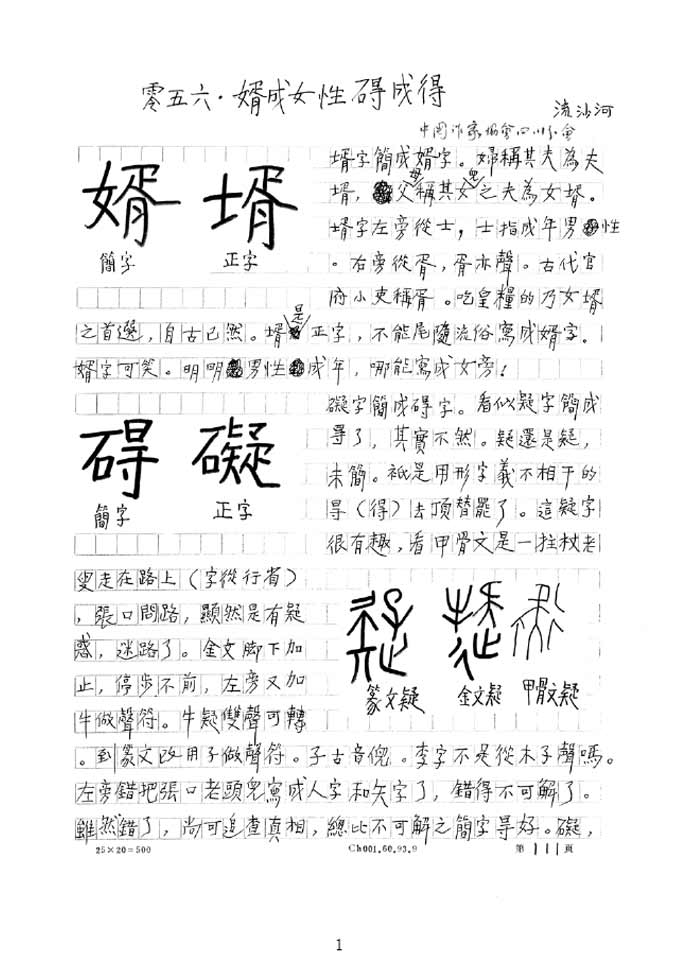 零五六·婿成女性碍成得
流沙河
中国作家協會四川分會
婿 壻
簡字 正字
壻字簡成婿字。婦稱其夫為夫
壻，父母稱其女兒之夫為女壻。
壻字左旁從士，士指成年男性
。右旁從胥，胥亦聲。古代官
府小吏稱胥。吃皇糧的乃女壻
之首選，自古已然。壻是正字，不能尾隨流俗寫成婿字。
婿字可笑。明明男性成年，哪能寫成女旁！
碍 礙
簡字 正字
礙字簡成碍字。看似疑字簡成
㝵了，其實不然。疑還是疑，
未簡。衹是用形字義不相干的
㝵（得）去頂替罷了。這疑字
很有趣，看甲骨文是一拄杖老
叟走在路上（字從行省）
，張口問路，顯然是有疑
惑，迷路了。金文脚下加
止，停步不前，左旁又加
牛做聲符。牛疑雙聲可轉
篆文疑 金文疑 甲骨文疑
。到篆文改用子做聲符。子古音倪。李字不是從木子聲嗎。
左旁錯把張口老頭兒寫成人字和矢字了，錯得不可解了。
雖然錯了，尚可追查真相，總比不可解之簡字㝵好。礙，
25×20=500 Ch001.60.93.9 第111頁
1